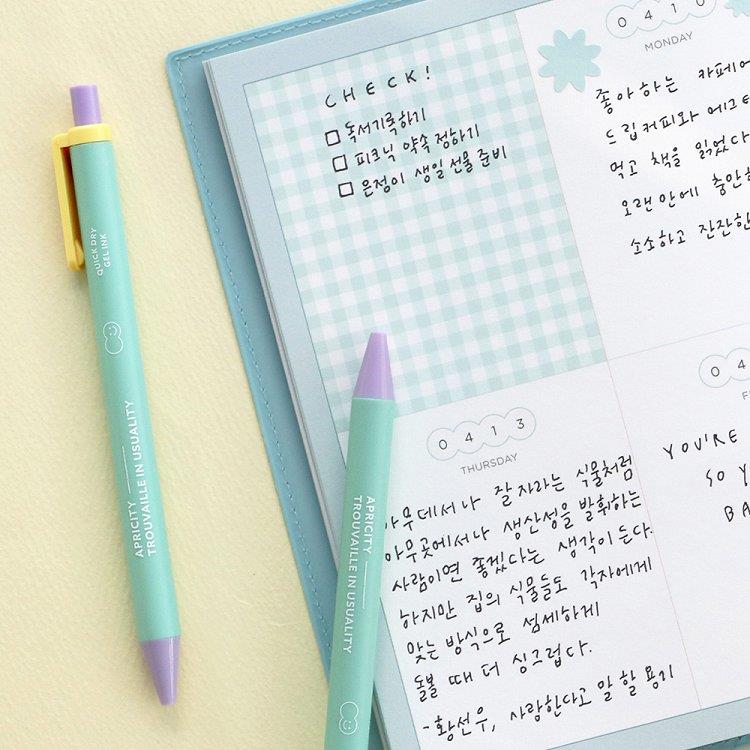 QUICK DRY
GEL INK
APRICITY
TROUVAILLE IN USUALITY
CHECK!
독서기록하기
피크닉 약속 정하기
은정이 생일 선물 준비
0410
MONDAY
좋아하는 카페에
드립커피와 에그타
먹고 책을 읽었다
오랜만에 충만한
소소하고 잔잔한
0413
THURSDAY
아무데서나 잘 자라는 식물처럼
아무곳에서나 생산성을 발휘하는
사람이면 좋겠다는 생각이 든다.
하지만 집의 식물들도 각자에게
맞는 방식으로 섬세하게
돌볼 때 더 싱그럽다.
- 황선우, 사랑한다고 말할 용기
04
F
YOU'RE
SO Y
BA
APRICITY
TROUVAILLE IN USUALITY